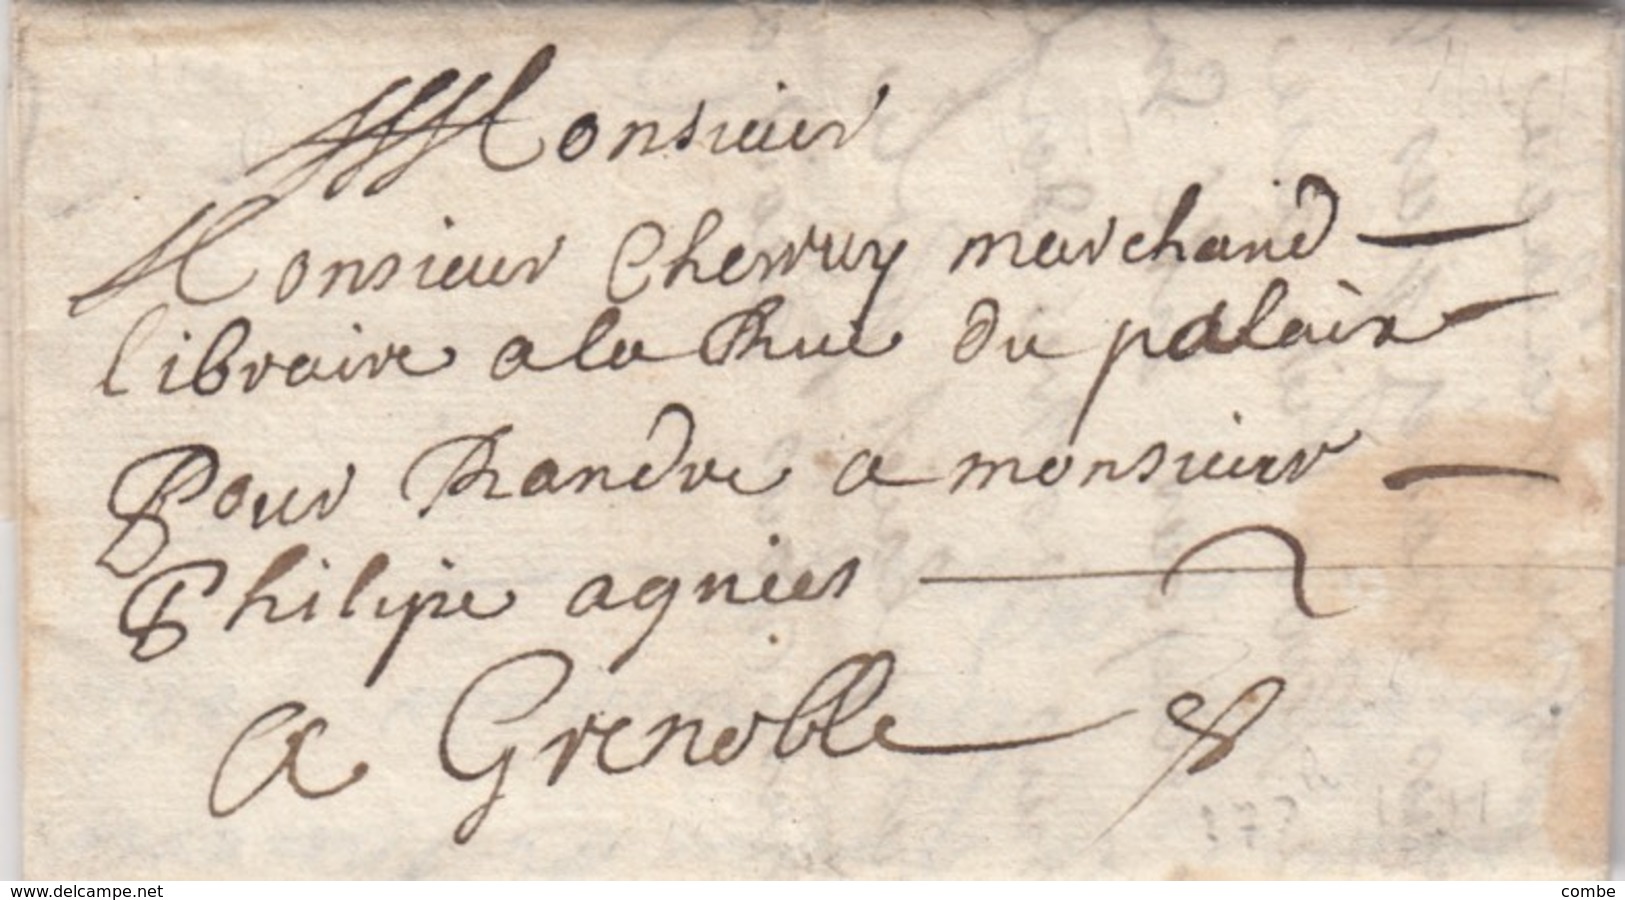 Monsieur
Monsieur Cherruy marchand
libraire a la Rue du palaix
Pour Randre a monsieur
Philipe agnies
a Grenoble
www.delcampe.net
combe